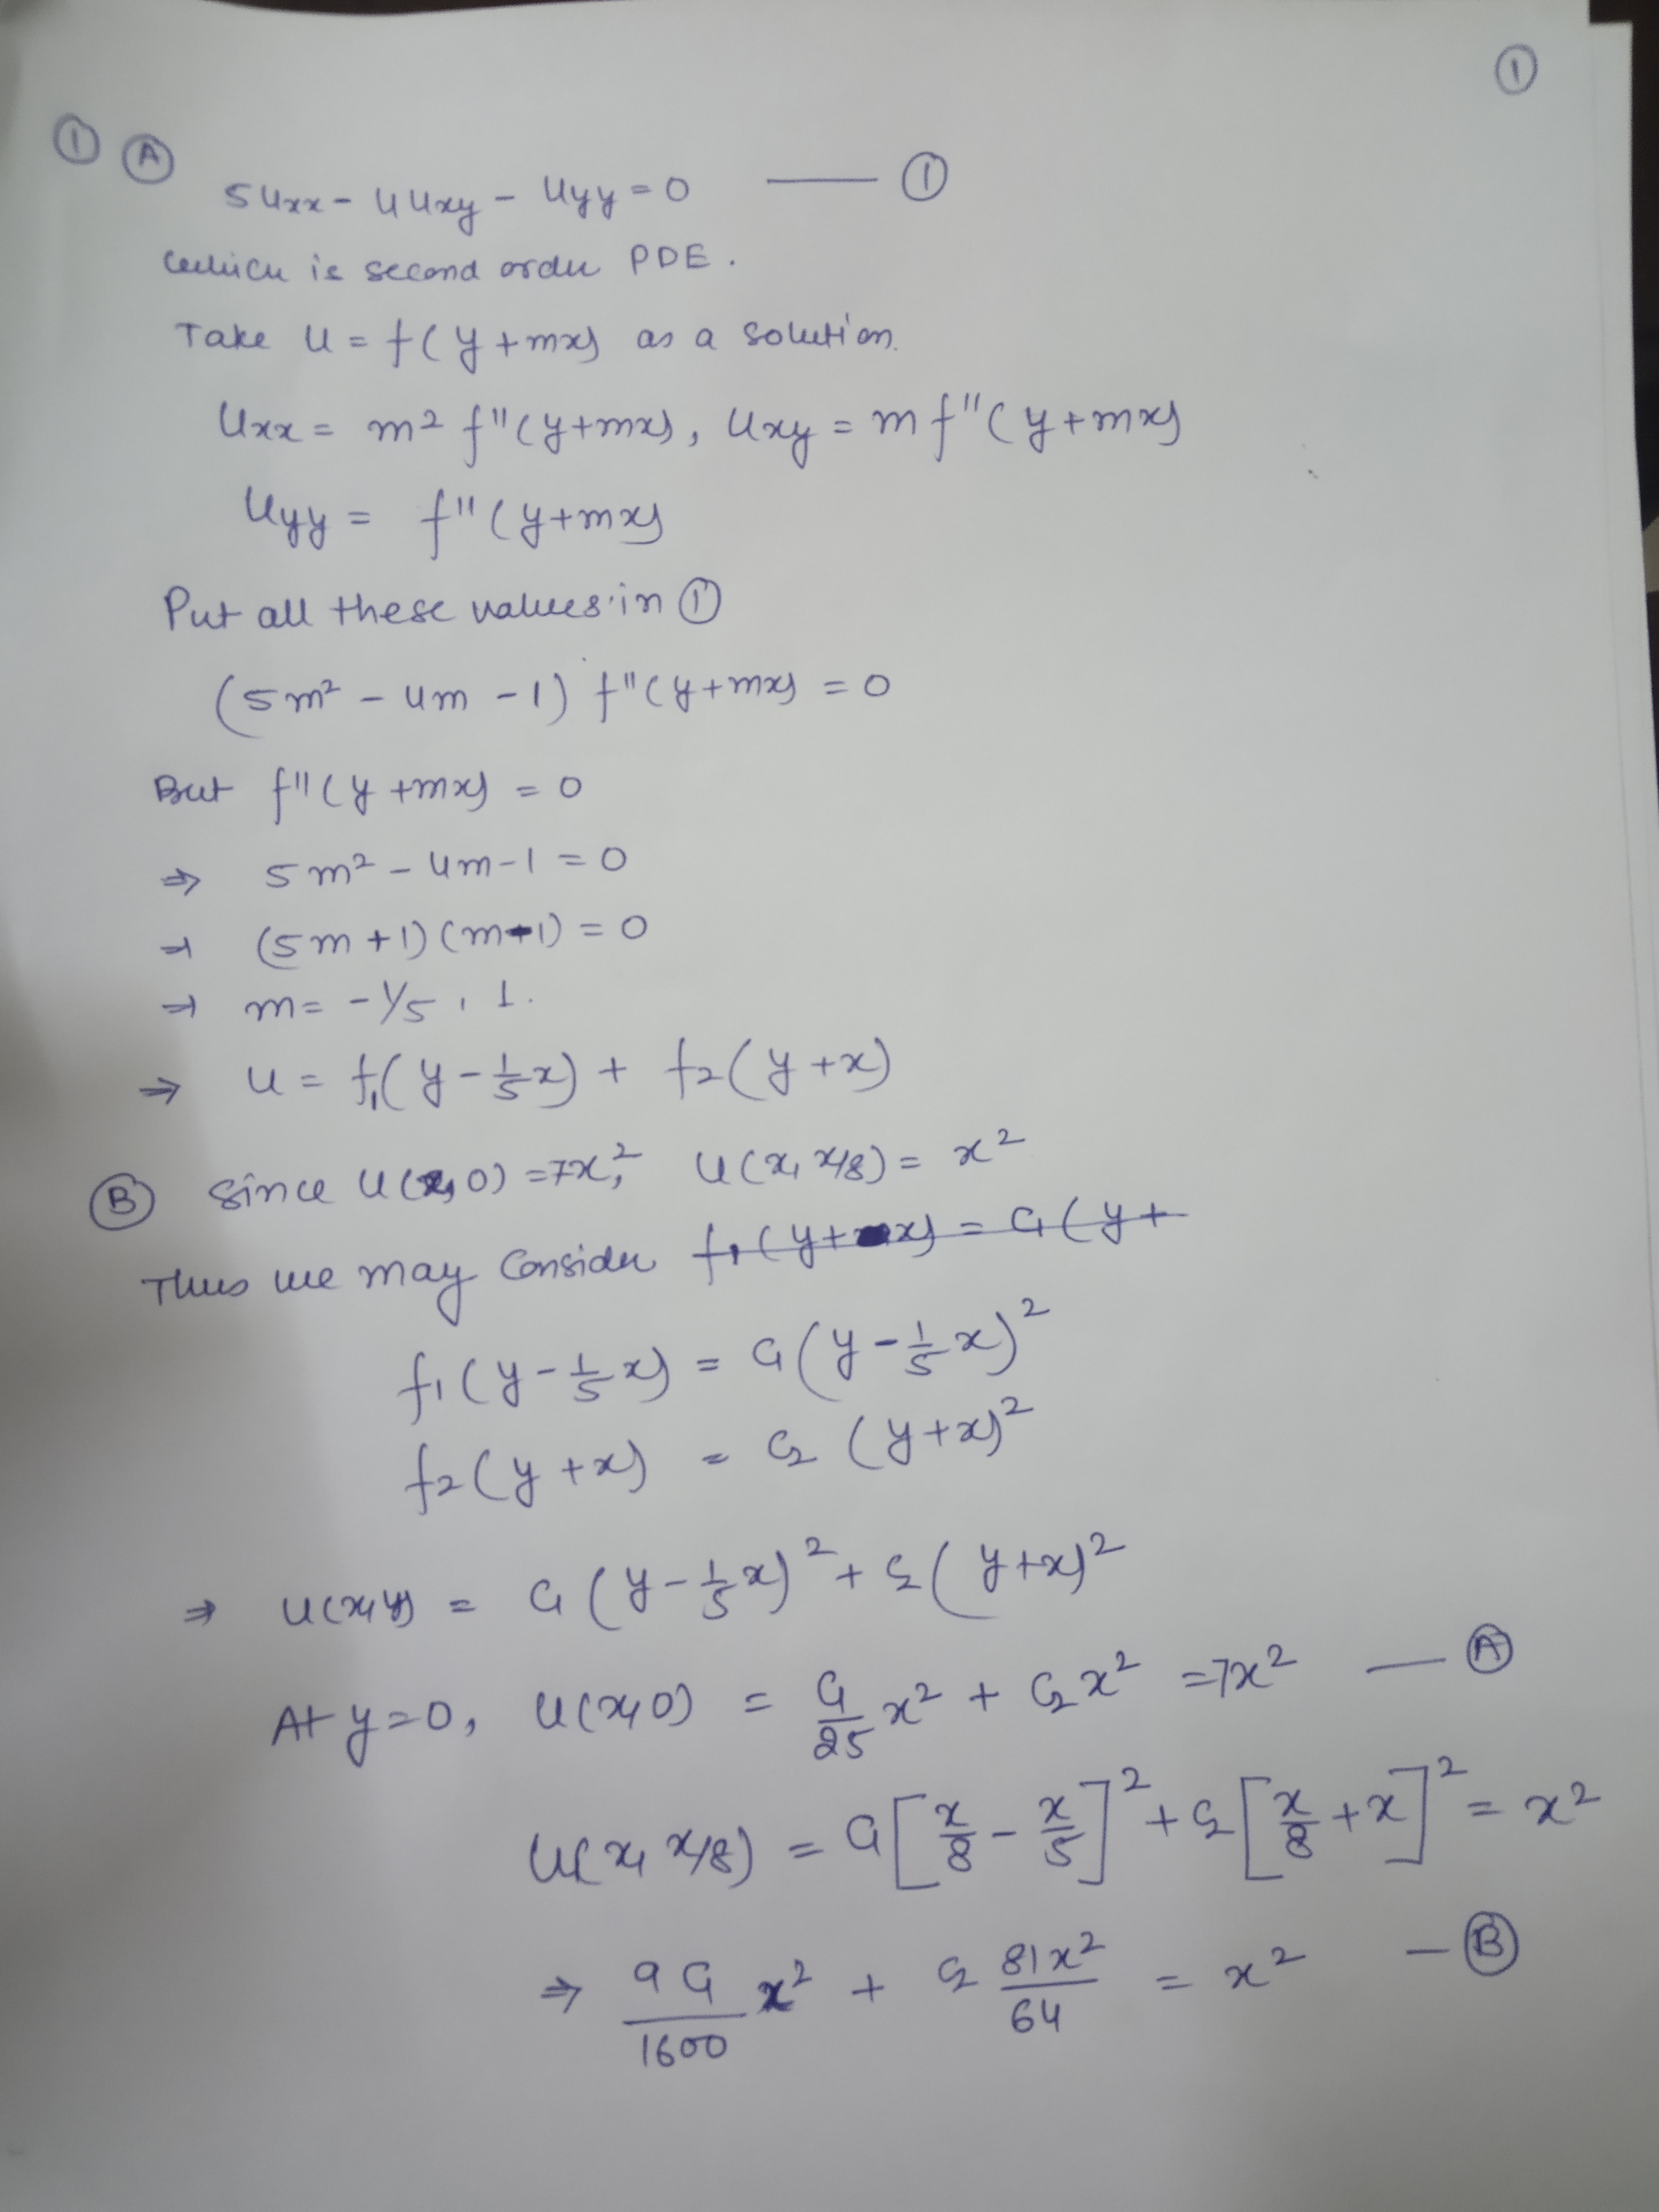 ①
① Ⓐ
5uxx - 4uxy - uyy = 0 —— ①
which is second order PDE.
Take u = f(y+mx) as a solution.
uxx = m² f''(y+mx), uxy = m f''(y+mx)
uyy = f''(y+mx)
Put all these values in ①
(5m² - 4m - 1) f''(y+mx) = 0
But f''(y+mx) = 0
⇒ 5m² - 4m - 1 = 0
⇒ (5m+1)(m-1) = 0
⇒ m = -1/5, 1.
⇒ u = f₁(y - 1/5 x) + f₂(y+x)
Ⓑ Since u(x,0) = 7x², u(x, x/8) = x²
Thus we may consider f₁(y+mx) = C₁(y+
f₁(y - 1/5 x) = C₁(y - 1/5 x)²
f₂(y+x) = C₂ (y+x)²
⇒ u(x,y) = C₁(y - 1/5 x)² + C₂(y+x)²
At y=0, u(x,0) = C₁/25 x² + C₂x² = 7x² — Ⓐ
u(x, x/8) = C₁[x/8 - x/5]² + C₂[x/8 + x]² = x²
⇒ 9C₁/1600 x² + C₂ 81x²/64 = x² — Ⓑ